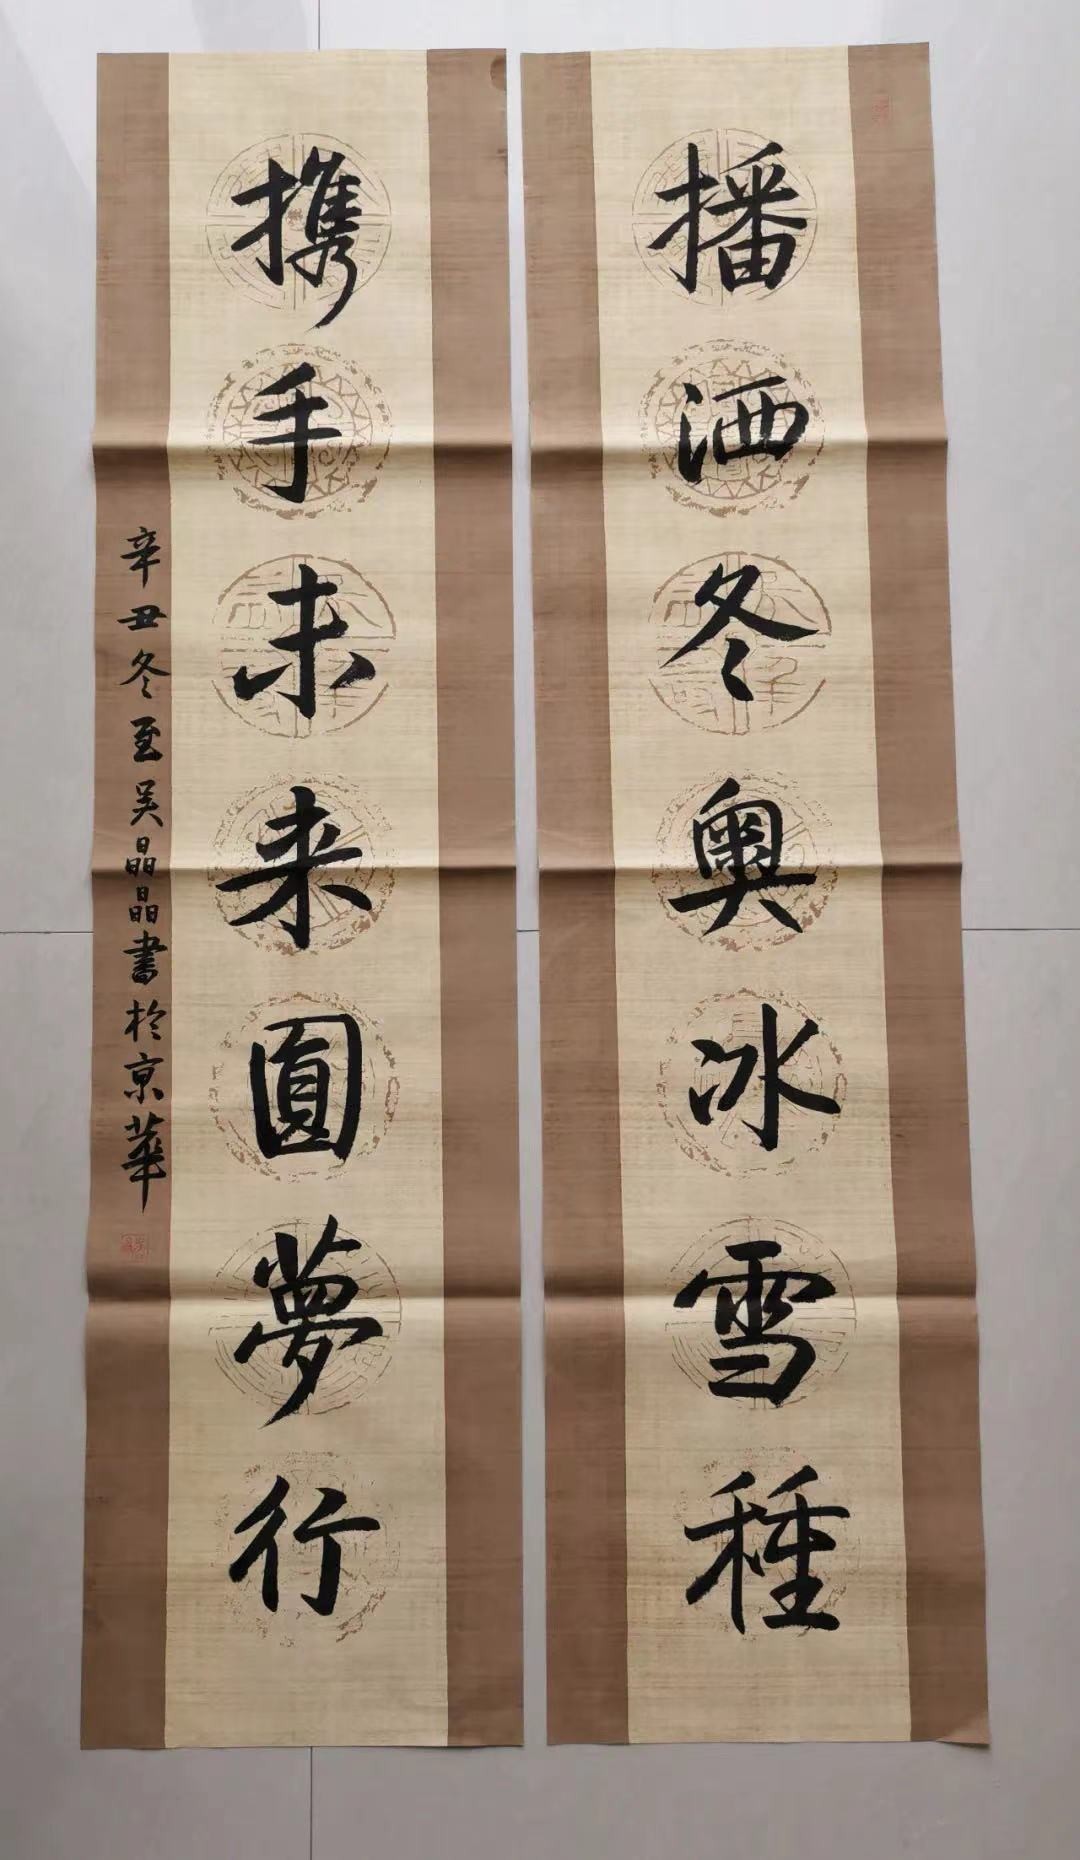 播洒冬奥冰雪種
携手未来圓夢行
辛丑冬至吴晶晶書於京華